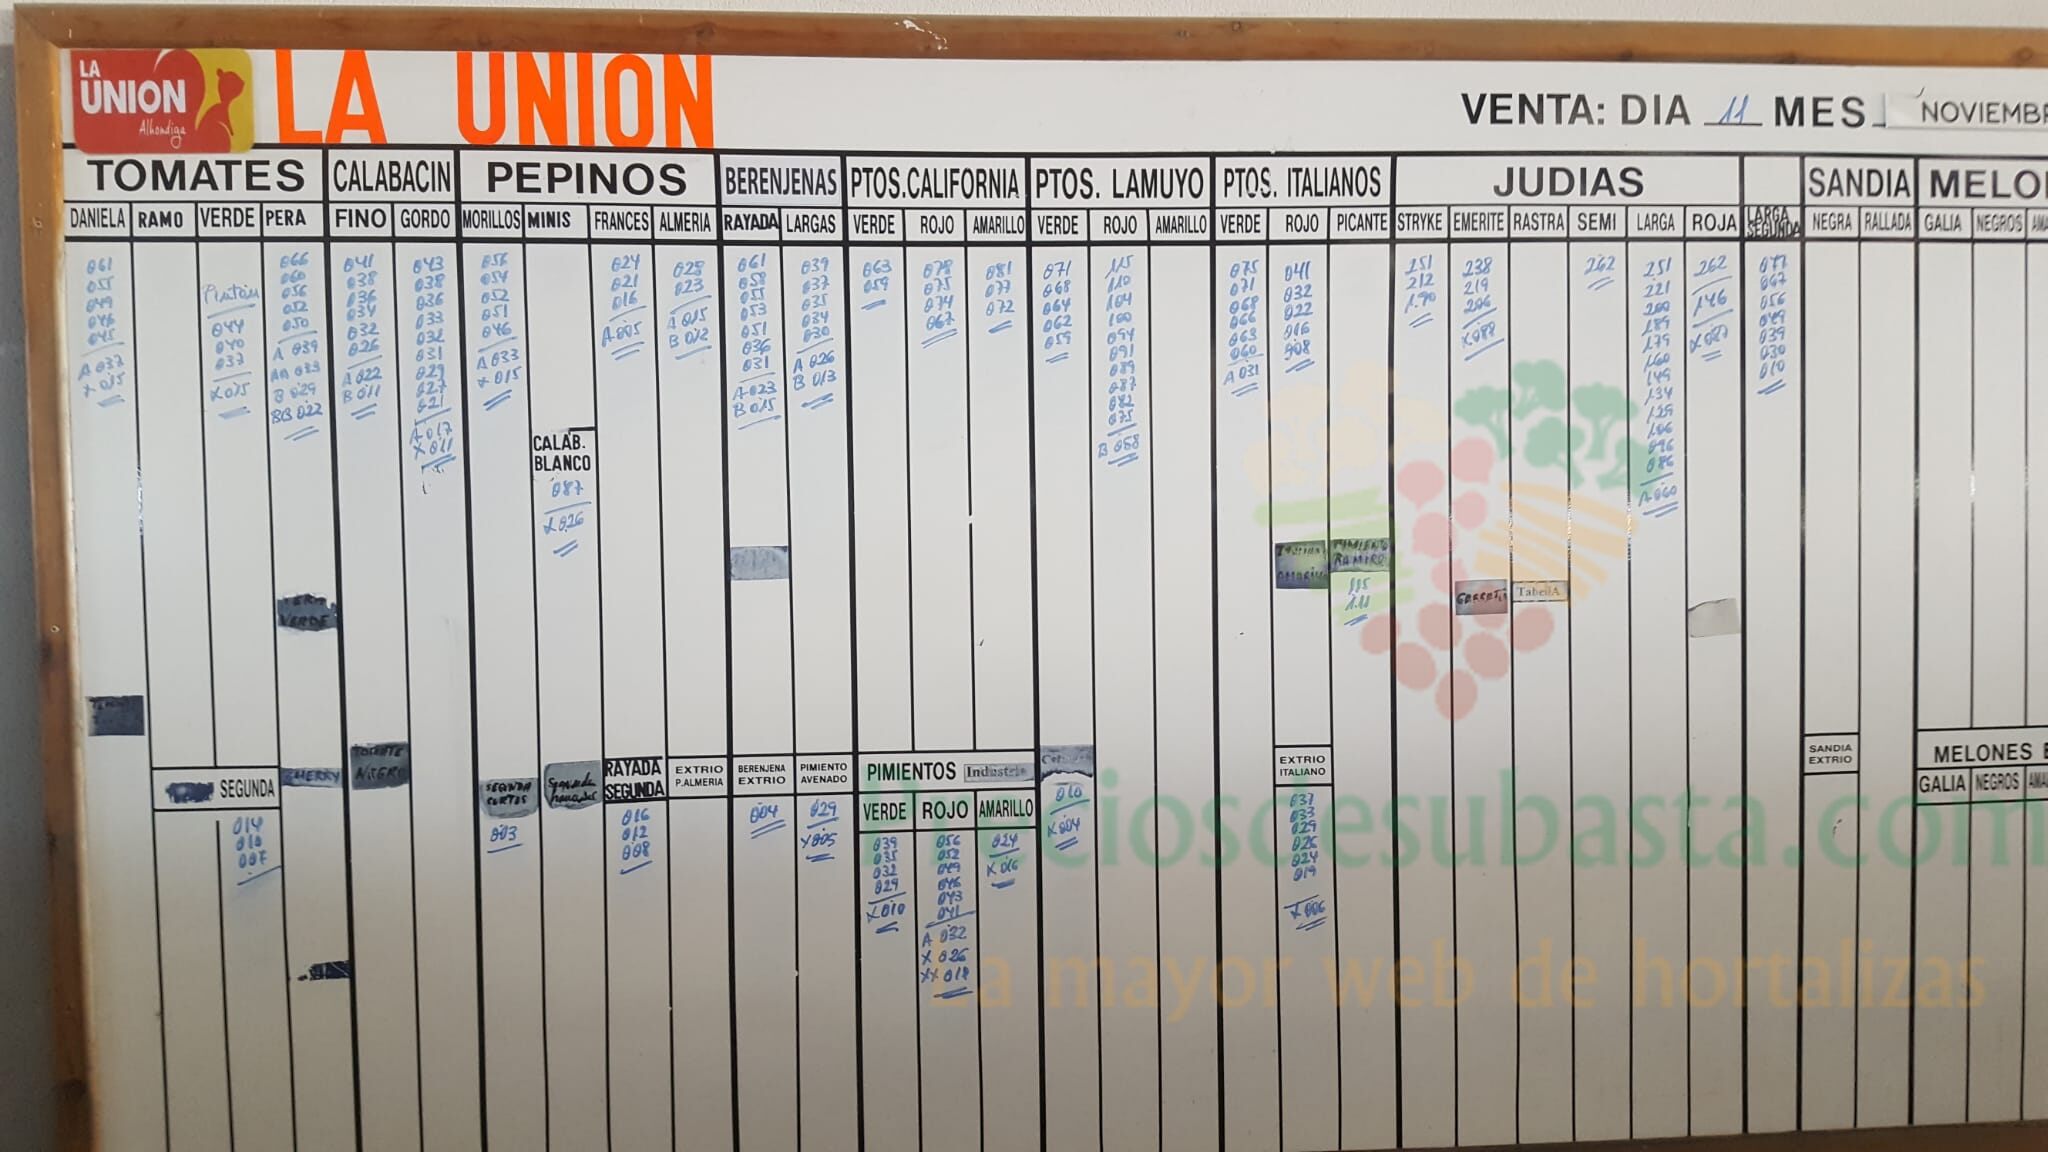 LA
UNION
Alhondiga
LA UNION
VENTA: DIA 11 MES NOVIEMBR
TOMATES CALABACIN PEPINOS BERENJENAS PTOS.CALIFORNIA PTOS. LAMUYO PTOS. ITALIANOS JUDIAS SANDIA MELO
DANIELA RAMO VERDE PERA FINO GORDO MORILLOS MINIS FRANCES ALMERIA RAYADA LARGAS VERDE ROJO AMARILLO VERDE ROJO AMARILLO VERDE ROJO PICANTE STRYKE EMERITE RASTRA SEMI LARGA ROJA LARGA SEGUNDA NEGRA RALLADA GALIA NEGROS AMA
061
055
049
046
045
A 037
X 015
044
040
037
X 015
066
060
056
052
050
A 039
AA 033
B 029
BB 022
041
038
036
034
032
026
A 022
B 011
043
038
036
033
032
031
029
027
021
A 017
X 011
056
054
052
051
046
A 033
X 015
CALAB.
BLANCO
087
X 026
024
021
016
A 005
028
023
A 015
B 012
061
058
055
053
051
036
031
A 023
B 015
039
037
035
034
030
A 026
B 013
063
059
078
075
074
067
081
077
072
071
068
064
062
059
115
110
104
100
094
091
089
087
082
075
B 058
075
071
068
066
063
060
A 031
041
032
022
016
008
PIMIENTO
RAMIRO
115
111
251
212
190
238
219
206
X 088
TabellA
262
251
221
200
189
179
160
149
134
129
106
096
086
A 060
262
146
X 087
077
067
056
049
039
030
010
VERDE
SEGUNDA
014
010
007
CHERRY
TOMATE
NEGRO
SEGUNDA
CORTOS
003
Segunda
RAYADA
SEGUNDA
016
012
008
EXTRIO
P.ALMERIA
BERENJENA
EXTRIO
004
PIMIENTO
AVENADO
029
X 005
PIMIENTOS Industria
VERDE ROJO AMARILLO
039
035
032
029
X 010
056
052
049
046
043
041
A 032
X 026
XX 018
024
X 016
010
X 004
EXTRIO
ITALIANO
037
033
029
026
024
019
X 006
SANDIA
EXTRIO
MELONES E
GALIA NEGROS AMA
Preciosdesubasta.com
La mayor web de hortalizas